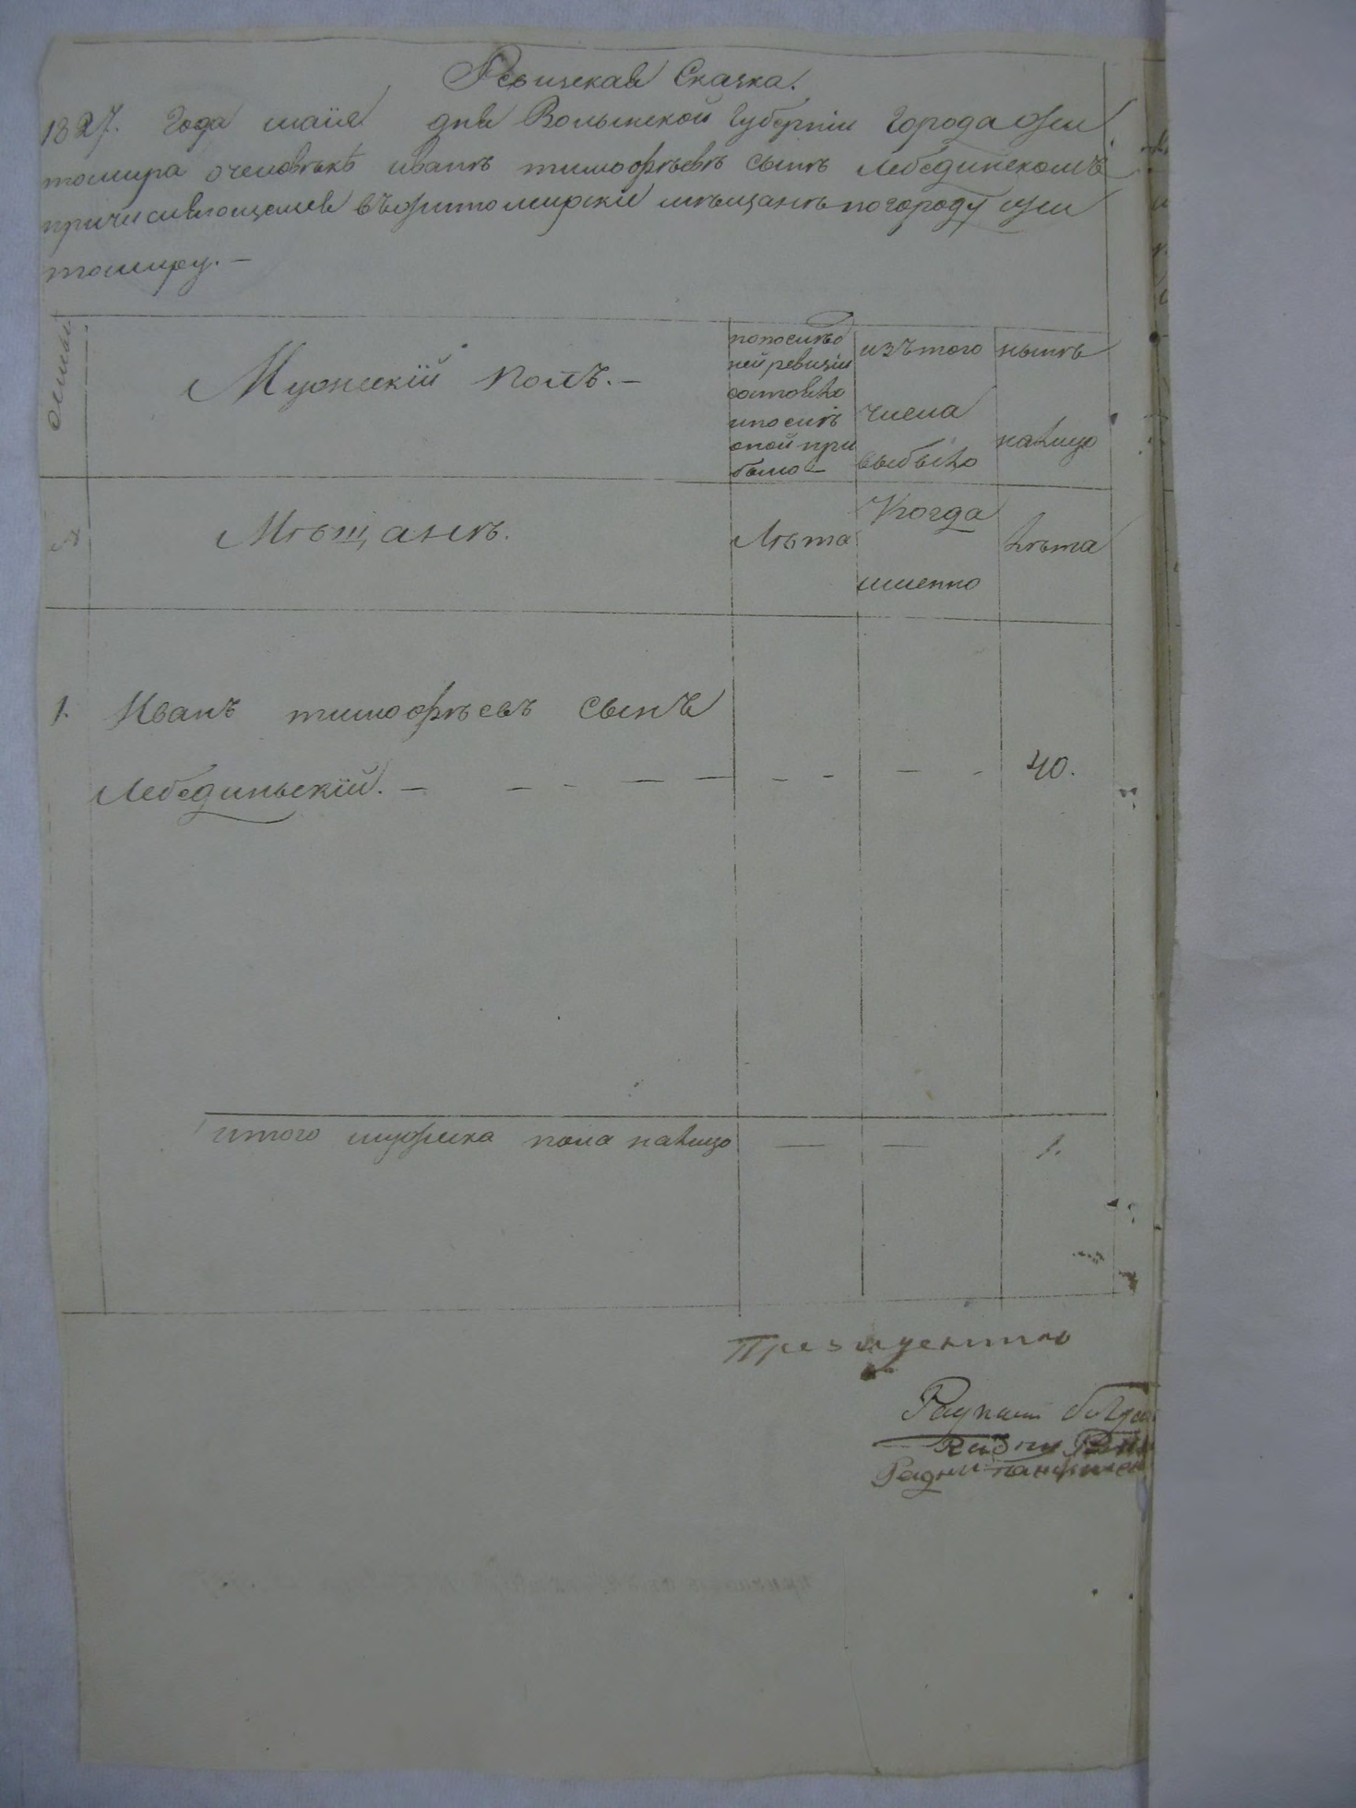 Ревижская Сказка.
1827. Года маия дня Волынской Губернии Города Жи
томира о человѣкѣ иванѣ тимофѣевѣ сынѣ Лебединскомъ
причисляющемся въ житомирскіе мѣщанѣ по городу Жи
томиру. —
Мужескій полъ. —
по последнѣ
ней ревизіи
состояло
и послѣ
оной при
было —
изъ того
числа
выбыло
нынѣ
налицо
Мѣщанѣ.
Лѣта
Когда
именно
Лѣта
1. Иванъ тимофѣевъ сынъ
Лебединьскій. — — - — — - - - — - 40.
итого мужеска пола налицо — — 1.
Президентъ
Ратманъ